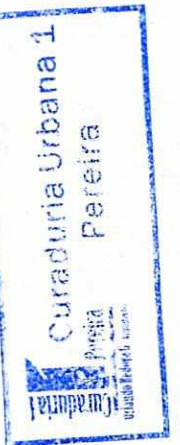 Curaduria Urbana 1
Pereira
Curaduria 1
Pereira